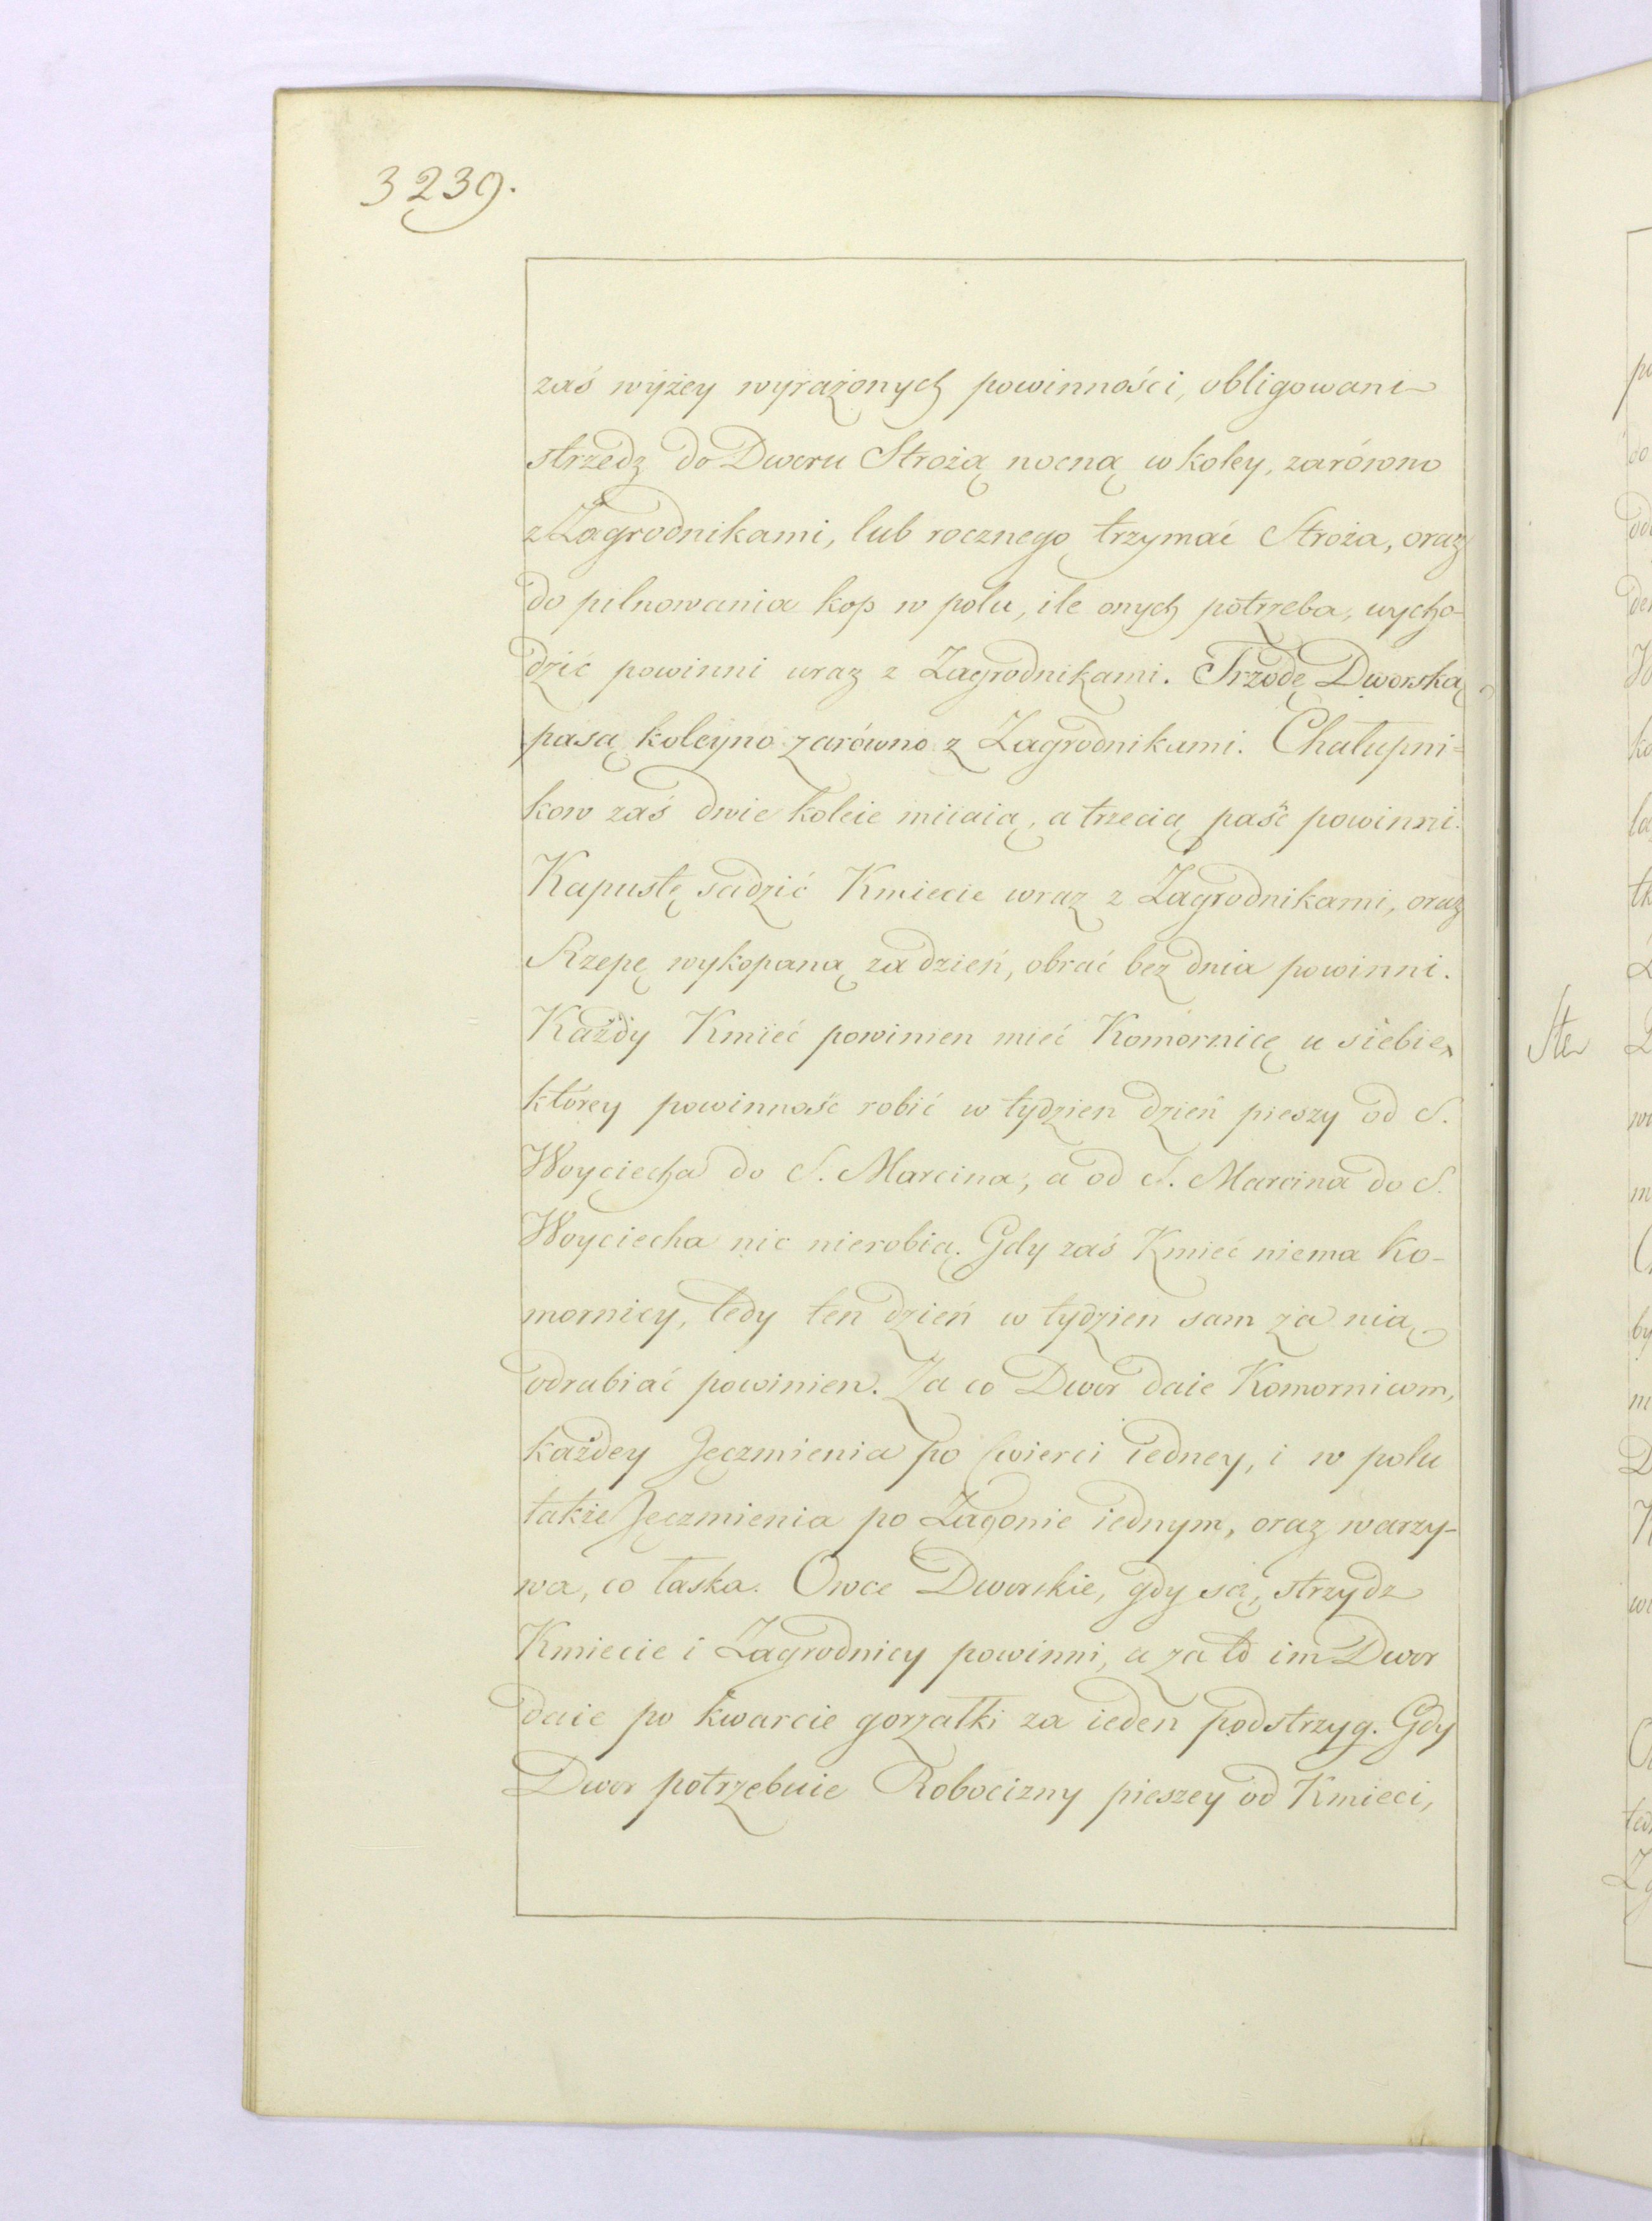 3239.
zaś wyżey wyrażonych powinności, obligowani
strzedz do Dworu Strożą nocną w koley, zarówno
z Zagrodnikami, lub rocznego trzymać Stroża, oraz
do pilnowania kop w polu, ile onych potrzeba, wycho-
dzić powinni wraz z Zagrodnikami. Trzodę Dworską
pasą koleyno zarówno z Zagrodnikami. Chałupni-
kow zaś dwie koleie miiaią, a trzecią paść powinni.
Kapustę sadzić Kmiecie wraz z Zagrodnikami, oraz
Rzepę wykopaną za dzień, obrać bez dnia powinni.
Każdy Kmieć powinien mieć Komornicę u siebie,
którey powinność robić w tydzien dzień pieszy od S.
Woyciecha do S. Marcina, a od S. Marcina do S.
Woyciecha nic nierobią. Gdy zaś Kmieć niema Ko-
mornicy, tedy ten dzień w tydzien sam za nią
odrabiać powinien. Za co Dwor daie Komornicom,
każdey Jęczmienia po ćwierci iedney, i w polu
takze Jęczmienia po Zagonie iednym, oraz warzy-
wa, co łaska. Owce Dworskie, gdy są, strzydz
Kmiecie i Zagrodnicy powinni, a za to im Dwor
daie po kwarcie gorzałki za ieden podstrzyg. Gdy
Dwor potrzebuie Robocizny pieszey od Kmieci,